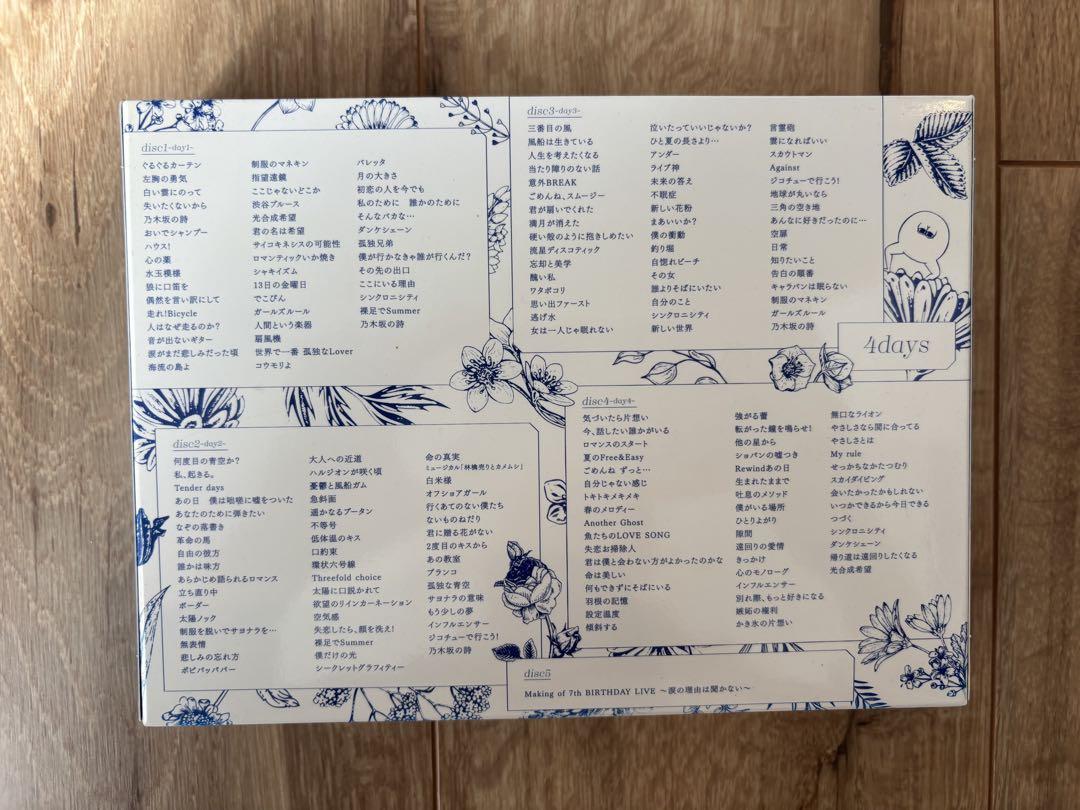 disc1-day1-
ぐるぐるカーテン
左胸の勇気
白い雲にのって
失いたくないから
乃木坂の詩
おいでシャンプー
ハウス!
心の薬
水玉模様
狼に口笛を
偶然を言い訳にして
走れ!Bicycle
人はなぜ走るのか?
音が出ないギター
涙がまだ悲しみだった頃
海流の島よ
制服のマネキン
指望遠鏡
ここじゃないどこか
渋谷ブルース
光合成希望
君の名は希望
サイコキネシスの可能性
ロマンティックいか焼き
シャキイズム
13日の金曜日
でこぴん
ガールズルール
人間という楽器
扇風機
世界で一番 孤独なLover
コウモリよ
バレッタ
月の大きさ
初恋の人を今でも
私のために 誰かのために
そんなバカな…
ダンケシェーン
孤独兄弟
僕が行かなきゃ誰が行くんだ?
その先の出口
ここにいる理由
シンクロニシティ
裸足でSummer
乃木坂の詩
disc2-day2-
何度目の青空か?
私、起きる。
Tender days
あの日 僕は咄嗟に嘘をついた
あなたのために弾きたい
なぞの落書き
革命の馬
自由の彼方
誰かは味方
あらかじめ語られるロマンス
立ち直り中
ボーダー
太陽ノック
制服を脱いでサヨナラを…
無表情
悲しみの忘れ方
ポピパッパパー
大人への近道
ハルジオンが咲く頃
憂鬱と風船ガム
急斜面
遥かなるブータン
不等号
低体温のキス
口約束
環状六号線
Threefold choice
太陽に口説かれて
欲望のリインカーネーション
空気感
失恋したら、顔を洗え!
裸足でSummer
僕だけの光
シークレットグラフィティー
命の真実
ミュージカル「林檎売りとカメムシ」
白米様
オフショアガール
行くあてのない僕たち
ないものねだり
君に贈る花がない
2度目のキスから
あの教室
ブランコ
孤独な青空
サヨナラの意味
もう少しの夢
インフルエンサー
ジコチューで行こう!
乃木坂の詩
disc3-day3-
三番目の風
風船は生きている
人生を考えたくなる
当たり障りのない話
意外BREAK
ごめんね、スムージー
君が扇いでくれた
満月が消えた
硬い殻のように抱きしめたい
流星ディスコティック
忘却と美学
醜い私
ワタボコリ
思い出ファースト
逃げ水
女は一人じゃ眠れない
泣いたっていいじゃないか?
ひと夏の長さより…
アンダー
ライブ神
未来の答え
不眠症
新しい花粉
まあいいか?
僕の衝動
釣り堀
自惚れビーチ
その女
誰よりそばにいたい
自分のこと
シンクロニシティ
新しい世界
言霊砲
雲になればいい
スカウトマン
Against
ジコチューで行こう!
地球が丸いなら
三角の空き地
あんなに好きだったのに…
空扉
日常
知りたいこと
告白の順番
キャラバンは眠らない
制服のマネキン
ガールズルール
乃木坂の詩
4days
disc4-day4-
気づいたら片想い
今、話したい誰かがいる
ロマンスのスタート
夏のFree&Easy
ごめんね ずっと…
自分じゃない感じ
トキトキメキメキ
春のメロディー
Another Ghost
魚たちのLOVE SONG
失恋お掃除人
君は僕と会わない方がよかったのかな
命は美しい
何もできずにそばにいる
羽根の記憶
設定温度
傾斜する
強がる蕾
転がった鐘を鳴らせ!
他の星から
ショパンの嘘つき
Rewindあの日
生まれたままで
吐息のメソッド
僕がいる場所
ひとりよがり
隙間
遠回りの愛情
きっかけ
心のモノローグ
インフルエンサー
別れ際、もっと好きになる
嫉妬の権利
かき氷の片想い
無口なライオン
やさしさなら間に合ってる
やさしさとは
My rule
せっかちなかたつむり
スカイダイビング
会いたかったかもしれない
いつかできるから今日できる
つづく
シンクロニシティ
ダンケシェーン
帰り道は遠回りしたくなる
光合成希望
disc5
Making of 7th BIRTHDAY LIVE ～涙の理由は聞かない～